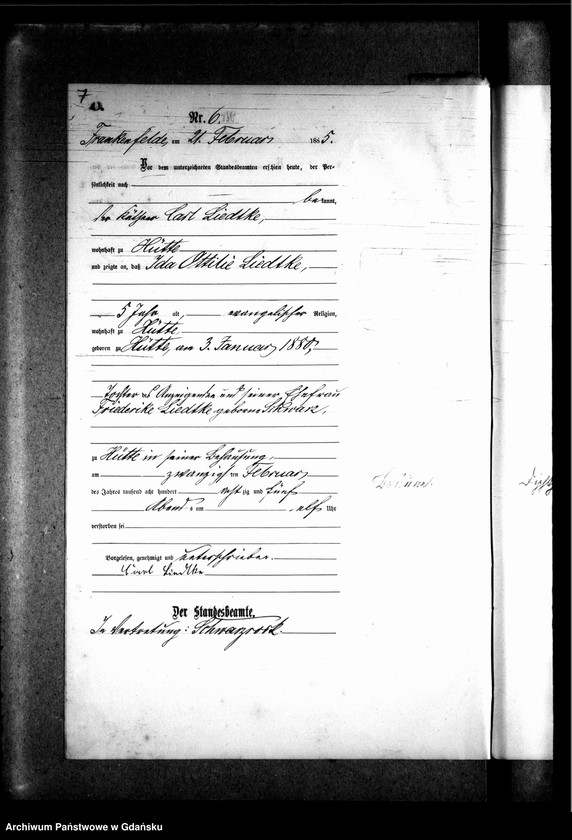 7
Nr. 6.
Frankenfelde, am 21. Februar 1885.
Vor dem unterzeichneten Standesbeamten erschien heute, der Per-
sönlichkeit nach
bekannt,
der Käthner Carl Liedtke,
wohnhaft zu Hütte
und zeigte an, daß Ida Ottilie Liedtke,
5 Jahr alt, evangelischer Religion,
wohnhaft zu Hütte
geboren zu Hütte, am 3. Januar 1880,
Tochter des Anzeigenden und seiner Ehefrau
Friederike Liedtke geborne
zu Hütte in seiner Behausung,
am zwanzigsten Februar
des Jahres tausend acht hundert achtzig und fünf
Abends um elf Uhr
verstorben sei
Vorgelesen, genehmigt und unterschrieben
Carl Liedtke
Der Standesbeamte.
In Vertretung: Schwarzrock.
Archiwum Państwowe w Gdańsku